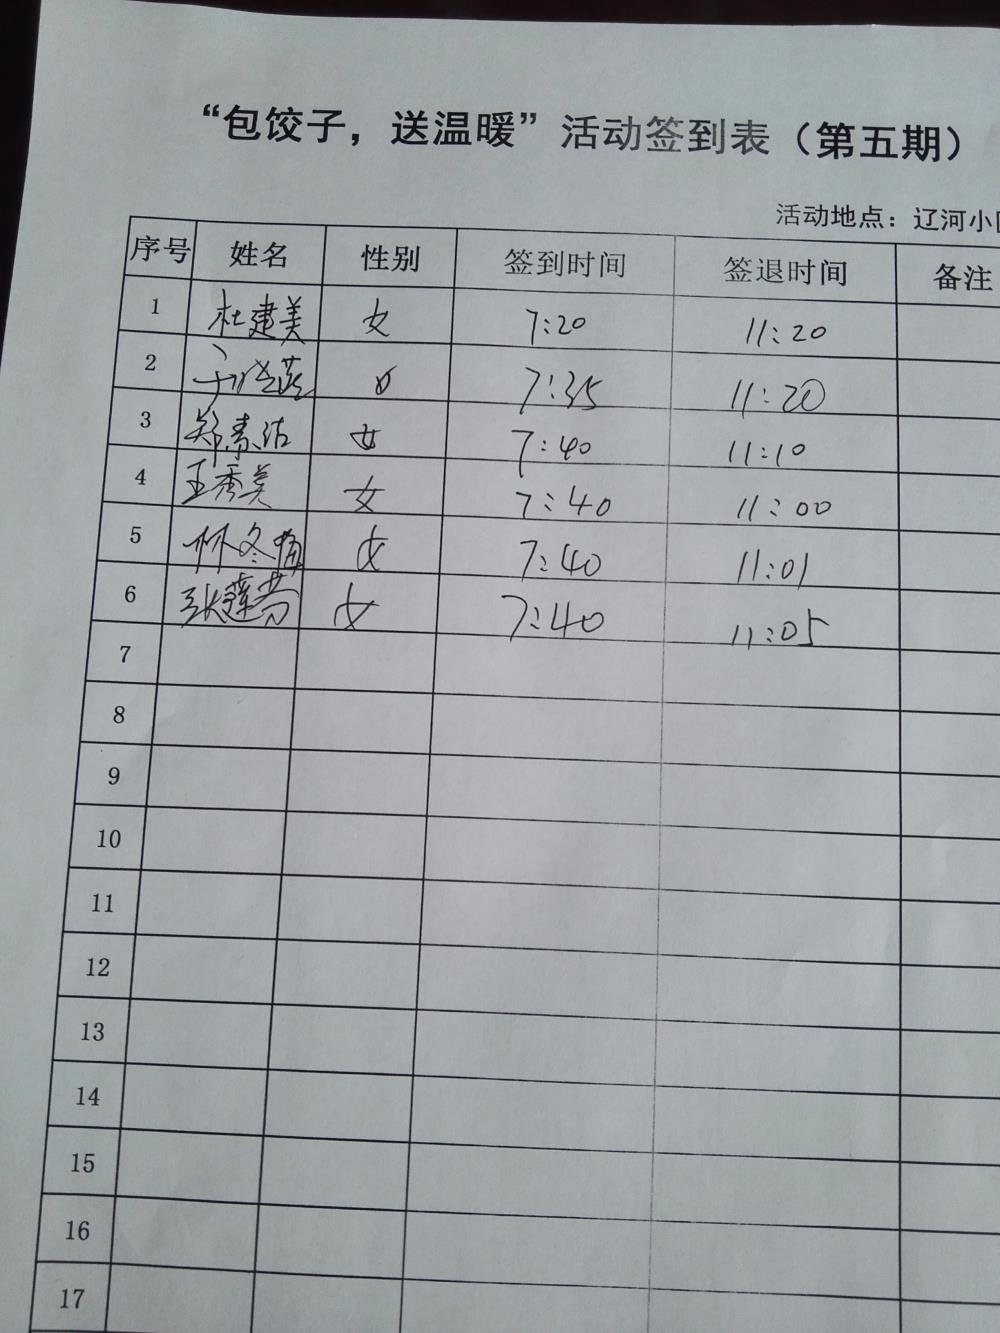 “包饺子，送温暖”活动签到表（第五期）
活动地点：辽河小
序号 姓名 性别 签到时间 签退时间 备注
1 杜建美 女 7:20 11:20
2 女 7:35 11:20
3 郑素洁 女 7:40 11:10
4 王秀美 女 7:40 11:00
5 林冬梅 女 7:40 11:01
6 张莲芳 女 7:40 11:05
7
8
9
10
11
12
13
14
15
16
17